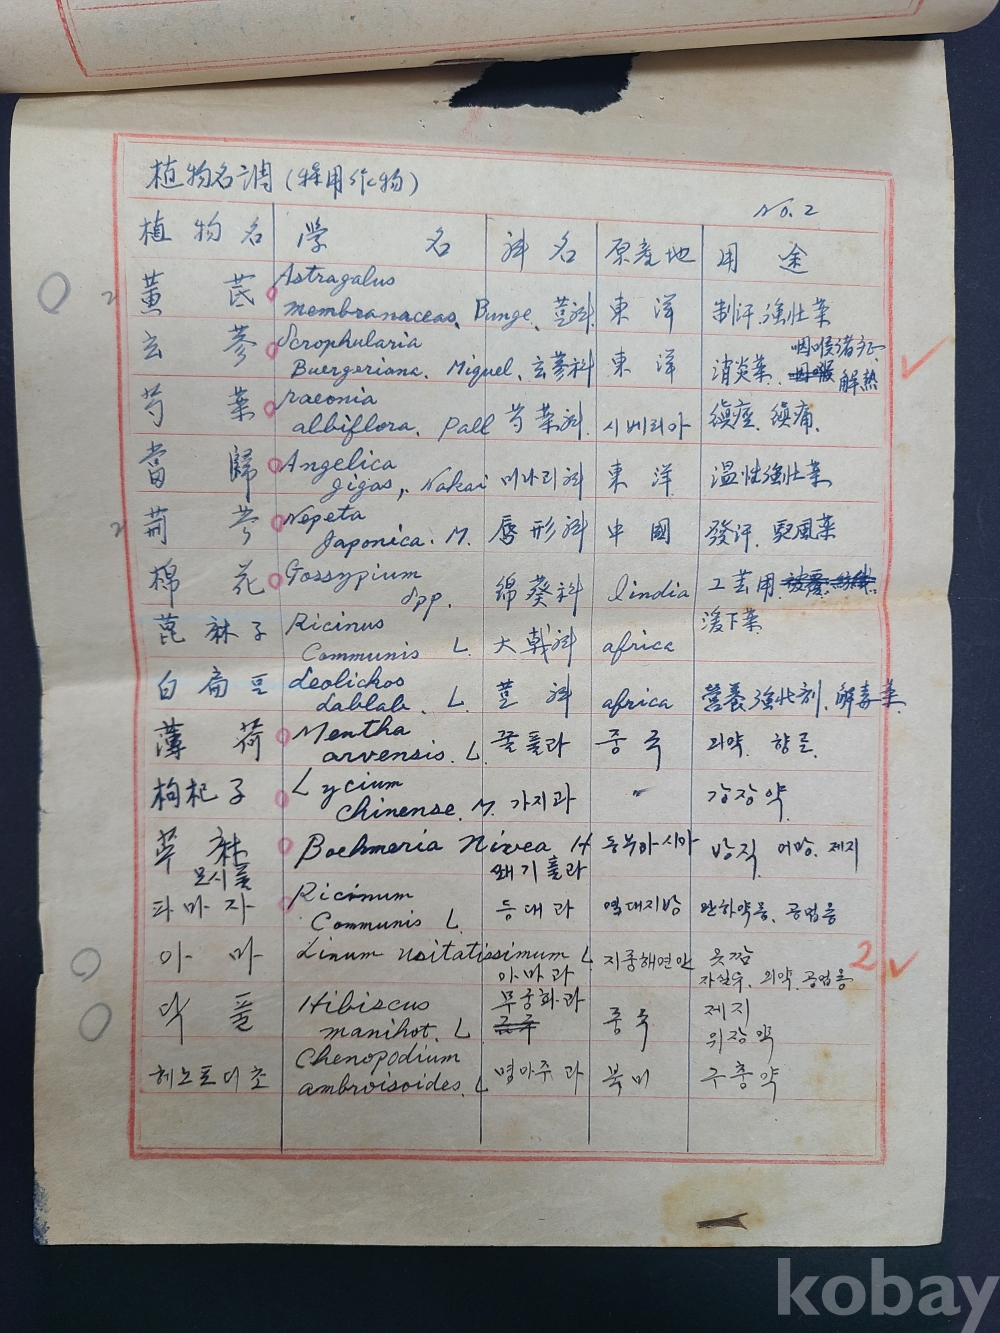 植物名調 (採用作物)
No. 2
植物名 学名 科名 原産地 用途
黃芪 Astragalus
membranaceas. Bunge. 荳科 東洋 制汗.強壯薬
咽喉諸症
玄蔘 Scrophularia
Buergeriana. Miguel. 玄蔘科 東洋 消炎薬. 解熱
芍薬 Paeonia
albiflora. Pall 芍薬科. 시베리아 鎭痙. 鎭痛.
當歸 Angelica
gigas, Nakai 미나리科 東洋 温性強壯薬
荊芥 Nepeta
Japonica. M. 唇形科 中國 發汗. 驅風薬
棉花 Gossypium
Spp. 綿葵科 Iindia 工芸用
萞麻子 Ricinus
Communis L. 大戟科 africa 緩下薬
白扁豆 Leolichos
Lablab. L. 荳科 africa 營養.強壯剤. 解毒薬
薄荷 Mentha
arvensis. L. 꿀풀과 중국 의약. 향료
枸杞子 Lycium
Chinense. M. 가지과 〃 강장약
苧麻 Boehmeria Nivea H 동부아시아 방직 어망. 제지
모시풀 쐐기풀과
피마자 Ricinum
Communis L. 등대과 열대지방 완하약용. 공업용
아마 Linum usitatissimum L. 지중해연안 옷깜
아마과 자실유. 의약. 공업용
2
닥풀 Hibiscus 무궁화과 제지
manihot. L 중국 위장약
헤노포디초 Chenopodium
ambroisoides. L 명아주과 북미 구충약
kobay